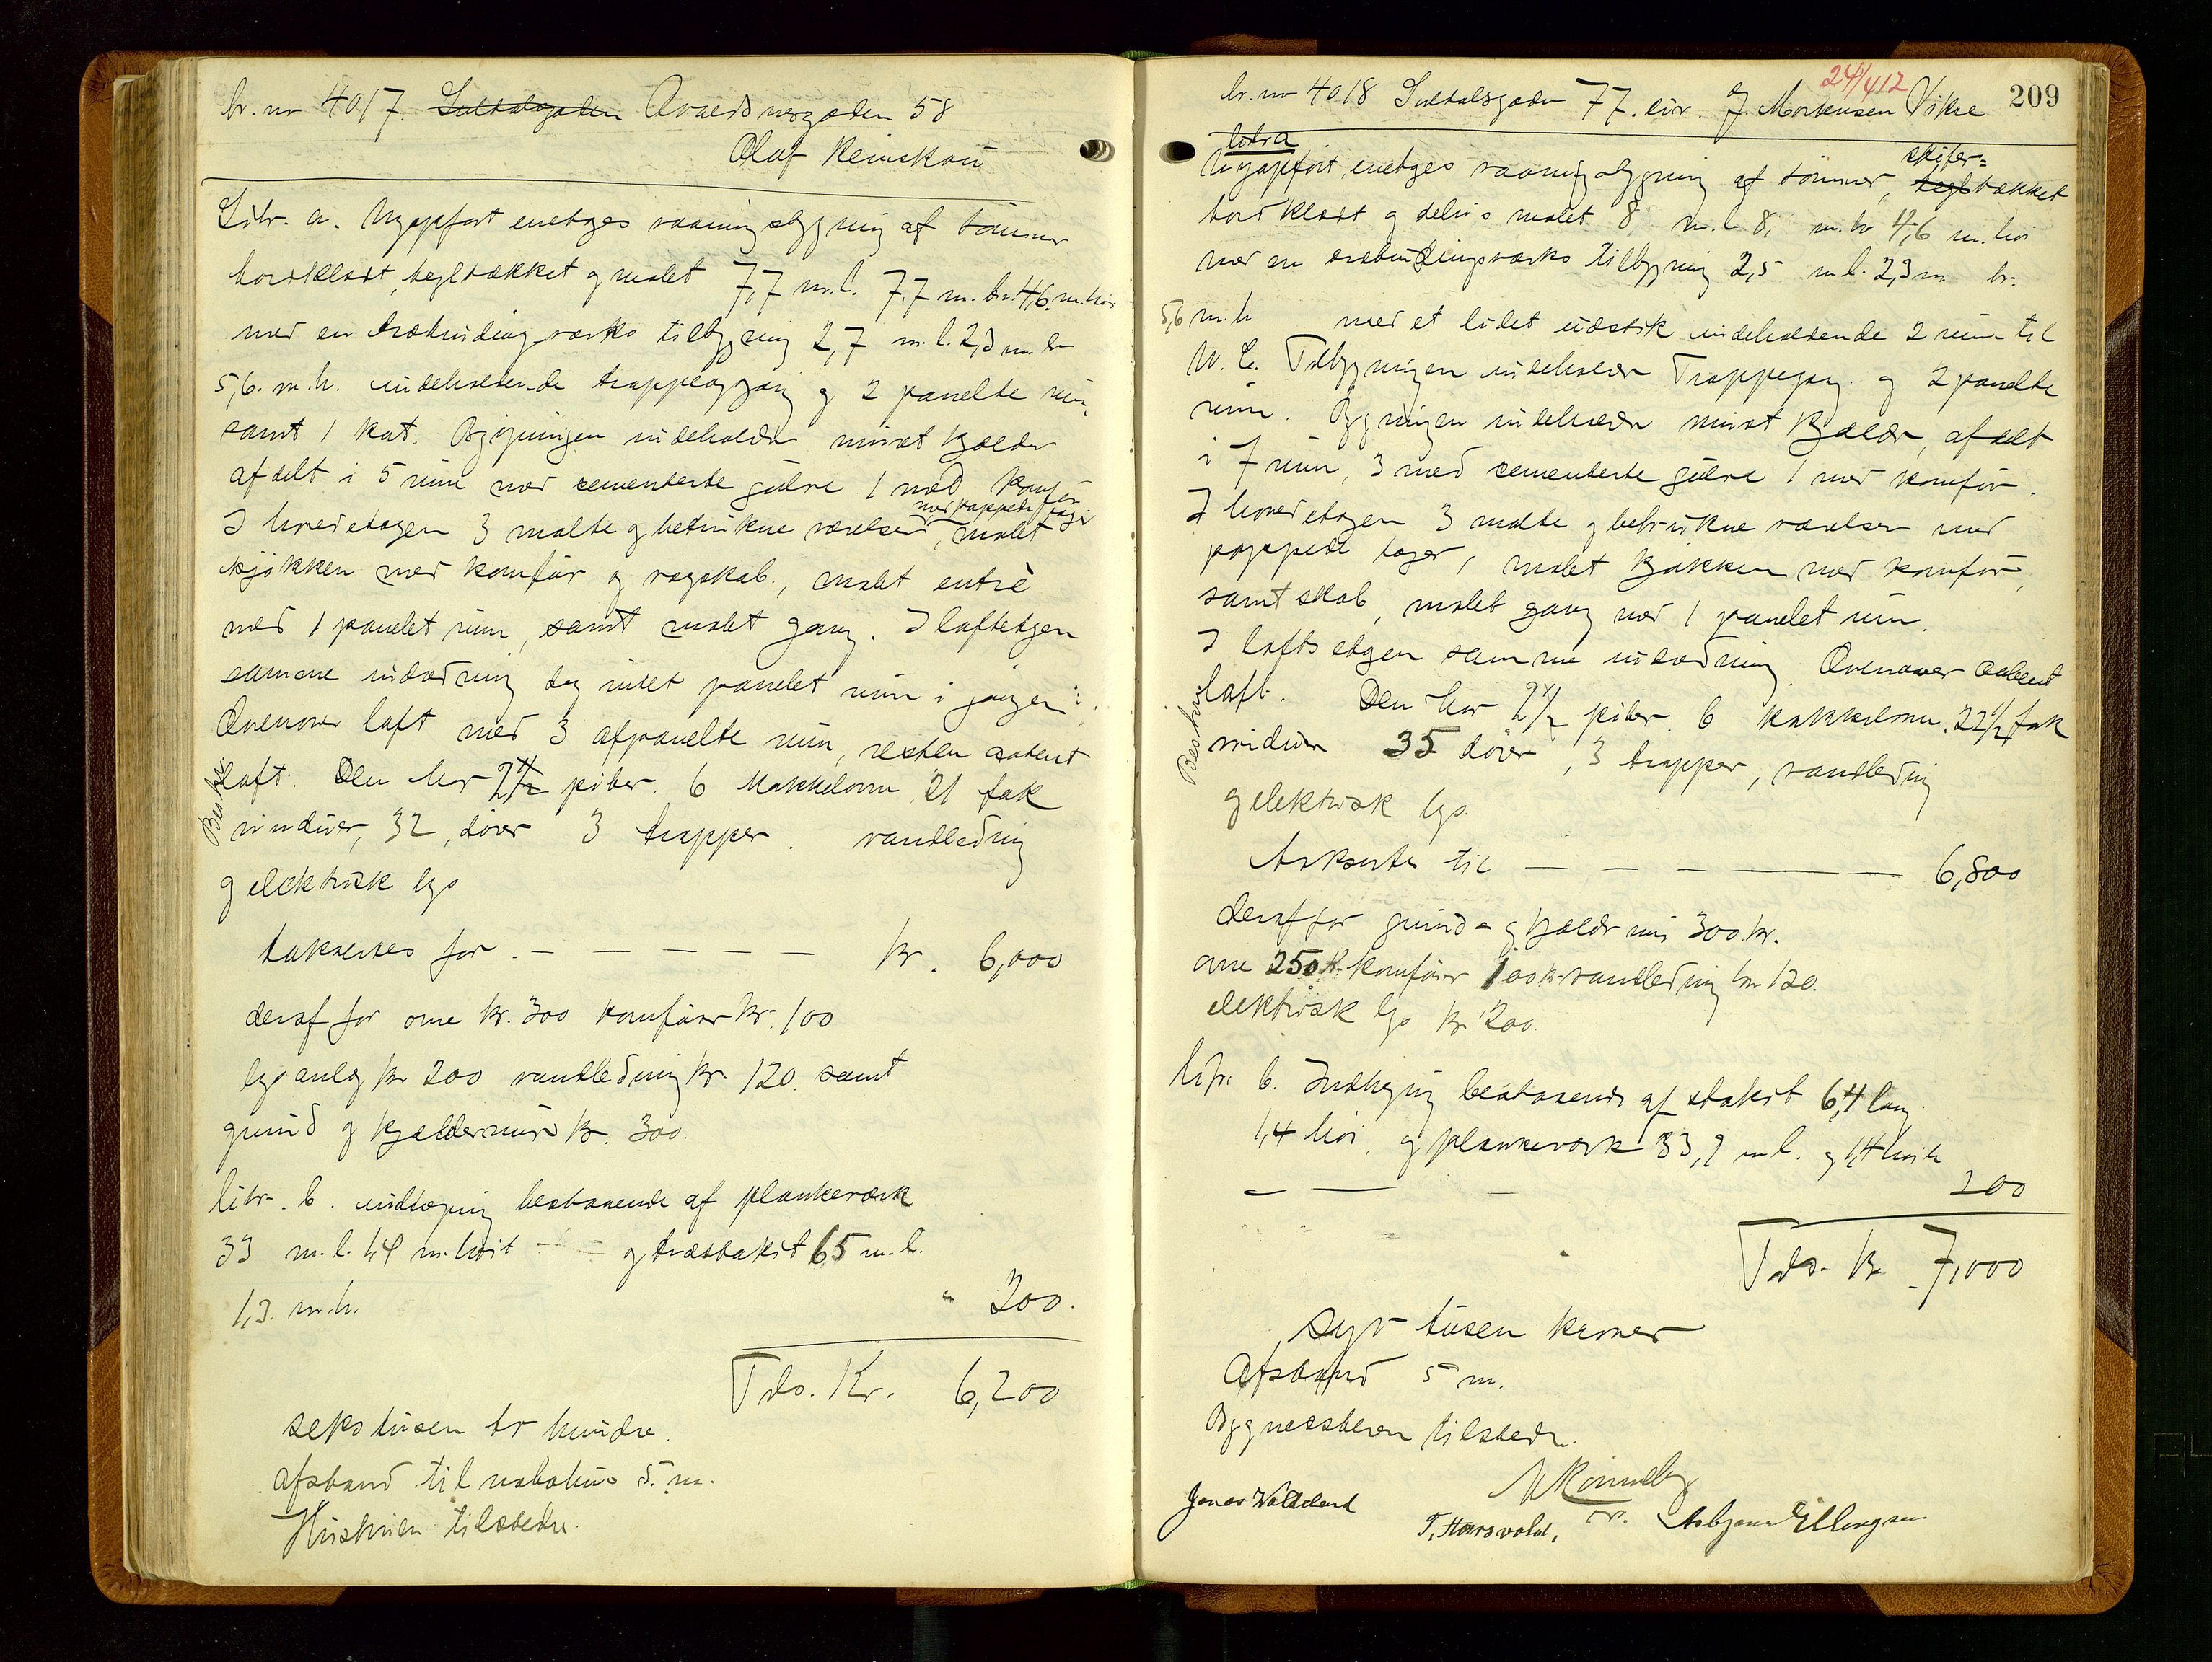 br. nr 4017. Suldalsgaden Avaldsnesgaden 58
Olaf Reinskou
Litr. a. Nyopført enetages vaaningsbygning af tømmer
bordklædt, tegltækket og malet 7,7 m. l. 7,7 m. br. 4,6. m. høi
med en træbindingsværks tilbygning 2,7 m. l. 2,3 m. br
5,6. m. h. indeholdende trappeopgang og 2 panelte rum,
samt 1 kot. Bygningen indeholder muret kjælder
afdelt i 5 rum med cementerte gulve 1 med komfør
med pappede tage
I hovedetagen 3 malte og betrukne værelser, malet
kjøkken med komfør og vogskab., malet entré
med 1 panelet rum, samt malet gang. I loftetagen
samme indredning dog intet panelet rum i gangen.
Ovenover loft med 3 afpanelte rum, resten aabent
loft. Den har 2 1/2 piber. 6 kakkelovne, 21 fak
Beskr.
vinduer, 32, døre 3 trapper. vandledning
og elektrisk lys
takseres for. — — — — — kr. 6,000
deraf for ovne kr. 300 komfører kr. 100
lysanlæg kr 200 vandledning kr. 120. samt
grund og kjældermure kr. 300.
litr. b. indhegning bestaaende af plankeværk
33 m. l. 1,4 m. høit — — og træstakit 65 m. l.
1,3. m. h. " 200.
Tils. Kr. 6,200
seks tusen to hundre.
afstand til nabohus 5. m.
Hustruen tilstede.
24/412
209
br. nr 4018 Suldalsgaden 77. eier. J. Mortensen Vikse
litra
Nyopført, enetages vaaningsbygning af tømmer, tegltækket
skifer=
bordklædt og delvis malet 8 m. l 8, m. br 4,6 m. høi
med en træbindingsværks tilbygning 2,5 m l. 2,3 m br.
5,6 m. h med et lidet udstik indeholdende 2 rum til
W. C. Tilbygningen indeholder Trappegang og 2 panelte
rum. Bygningen indeholder muret Kjælder, afdelt
i 7 rum, 3 med cementerte gulve 1 med komfør.
I hovedetagen 3 malte og betrukne værelser med
pappede tager, malet Kjøkken med komfør,
samt skab, malet gang med 1 panelet rum.
I loftsetagen samme indredning. Ovenover aabent
loft. Den har 2 1/2 piber 6 kakkelovne. 22 1/2 fak
Beskr.
vinduer 35 døre, 3 trapper, vandledning
og elektrisk lys.
Takseres til — — — — — 6,800
deraf for grund= og kjældermur 300 kr.
ovne 250 K. komfører 100 kr vandledning kr 120.
elektrisk lys kr 200.
litr. b. Indhegning bestaaende af stakit 6,4 lang
1,4 høi, og plankeværk 33,2 m l. og 1,4 høit
— — — 200
Tils. Kr 7,000
Syv tusen kroner
Afstand 5 m.
Bygmesteren tilstede.
Jonas Waldeland
T. Hansvold,
Asbjørn Ellingsen